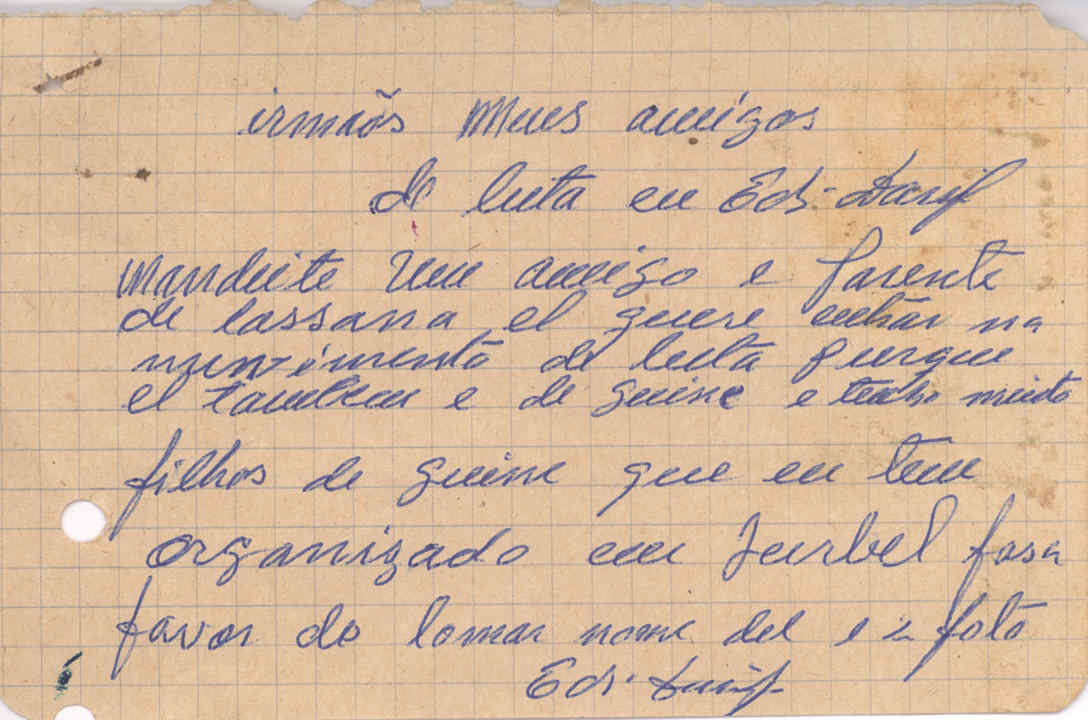 irmaõs Mues amigos
de luta eu Eds.
Manduite um amigo e parente
de lassana el quere entrar na
de luta purque
el tambem e de guine e tenho muito
filhos de guine que eu tem
organizado em Jurbel fasa
favor de tomar nome del e 2 foto
Eds.